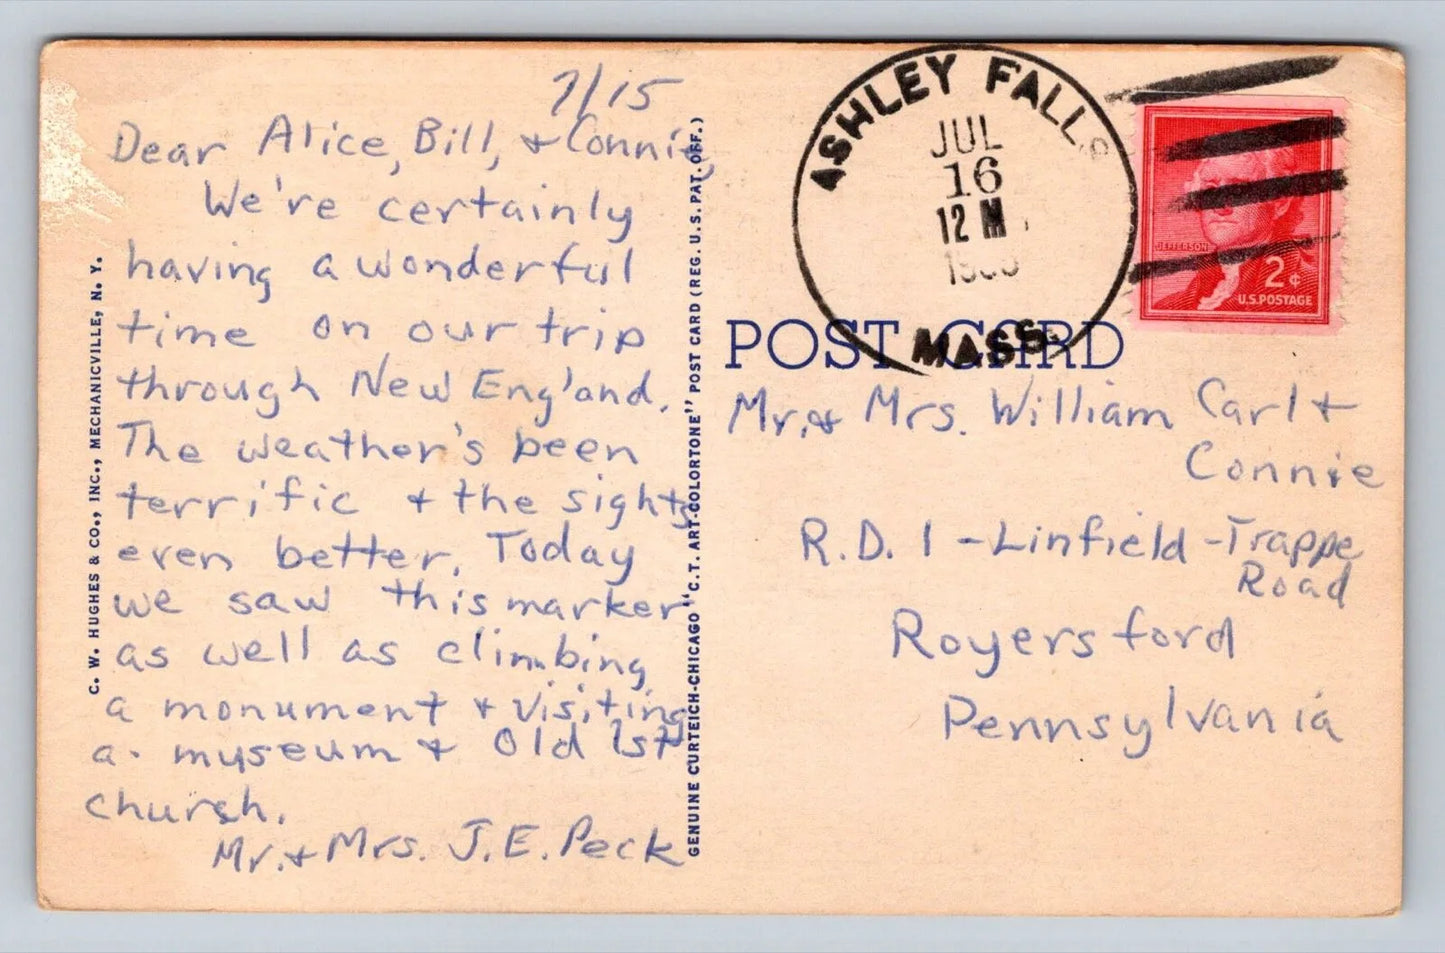 7/15
Dear Alice, Bill, & Connie,
We're certainly
having a wonderful
time on our trip
through New England.
The weather's been
terrific & the sights
even better. Today
we saw this marker
as well as climbing
a monument & visiting
a museum & Old 1st
church.
Mr. & Mrs. J. E. Peck
C. W. HUGHES & CO., INC., MECHANICVILLE, N. Y.
GENUINE CURTEICH-CHICAGO "C.T. ART-COLORTONE" POST CARD (REG. U.S. PAT. OFF.)
ASHLEY FALLS
JUL
16
12 M
MASS.
JEFFERSON
2¢
U.S. POSTAGE
POST CARD
Mr. & Mrs. William Carl &
Connie
R.D. 1 - Linfield - Trappe
Road
Royersford
Pennsylvania